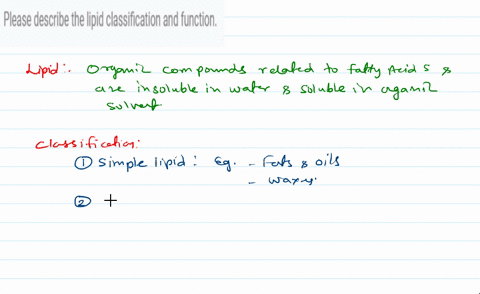 Please describe the lipid classification and function.
Lipid:. Organic compounds related to fatty Acids &
are insoluble in water & soluble in organic
solvent
Classification:
① Simple lipid: Eg. - Fats & oils
- waxes.
②